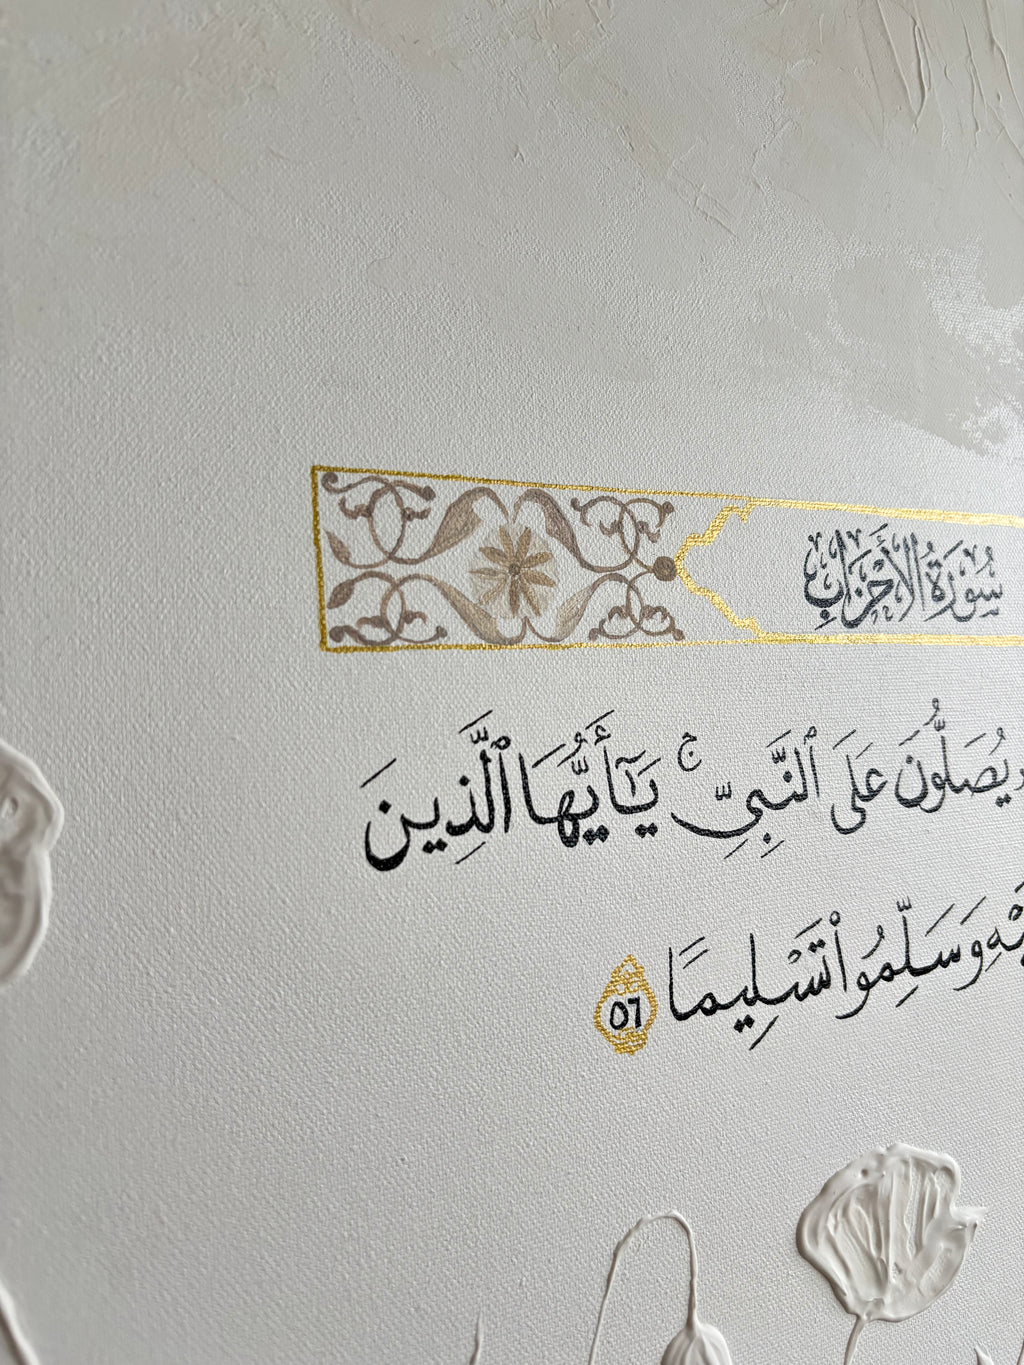 سُورَةُ الْأَحْزَابِ
يُصَلُّونَ عَلَى ٱلنَّبِيِّ ۚ يَـٰٓأَيُّهَا ٱلَّذِينَ
وَسَلِّمُوا۟ تَسْلِيمًا ٥٦